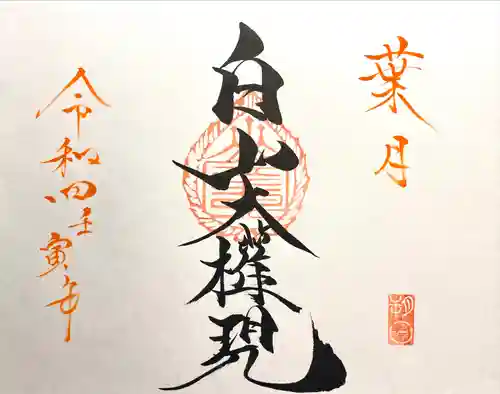 葉月
白山大権現
令和四壬寅年